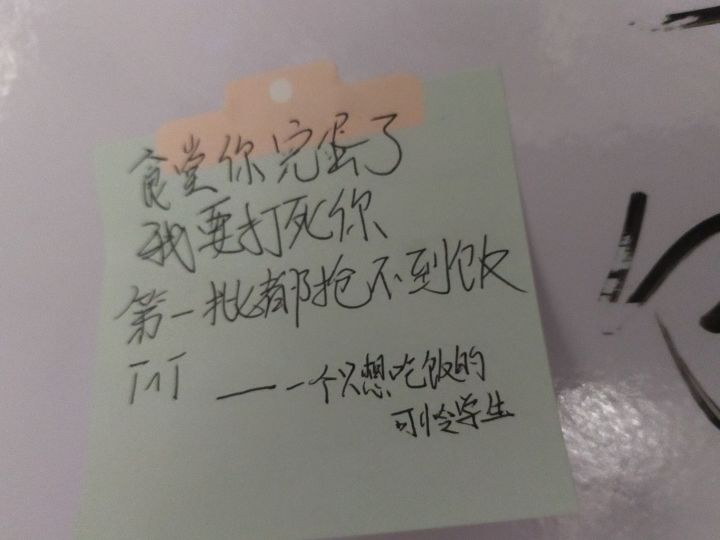 食堂你完蛋了
我要打死你
第一批都抢不到饭
TnT ——一个只想吃饭的
可怜学生